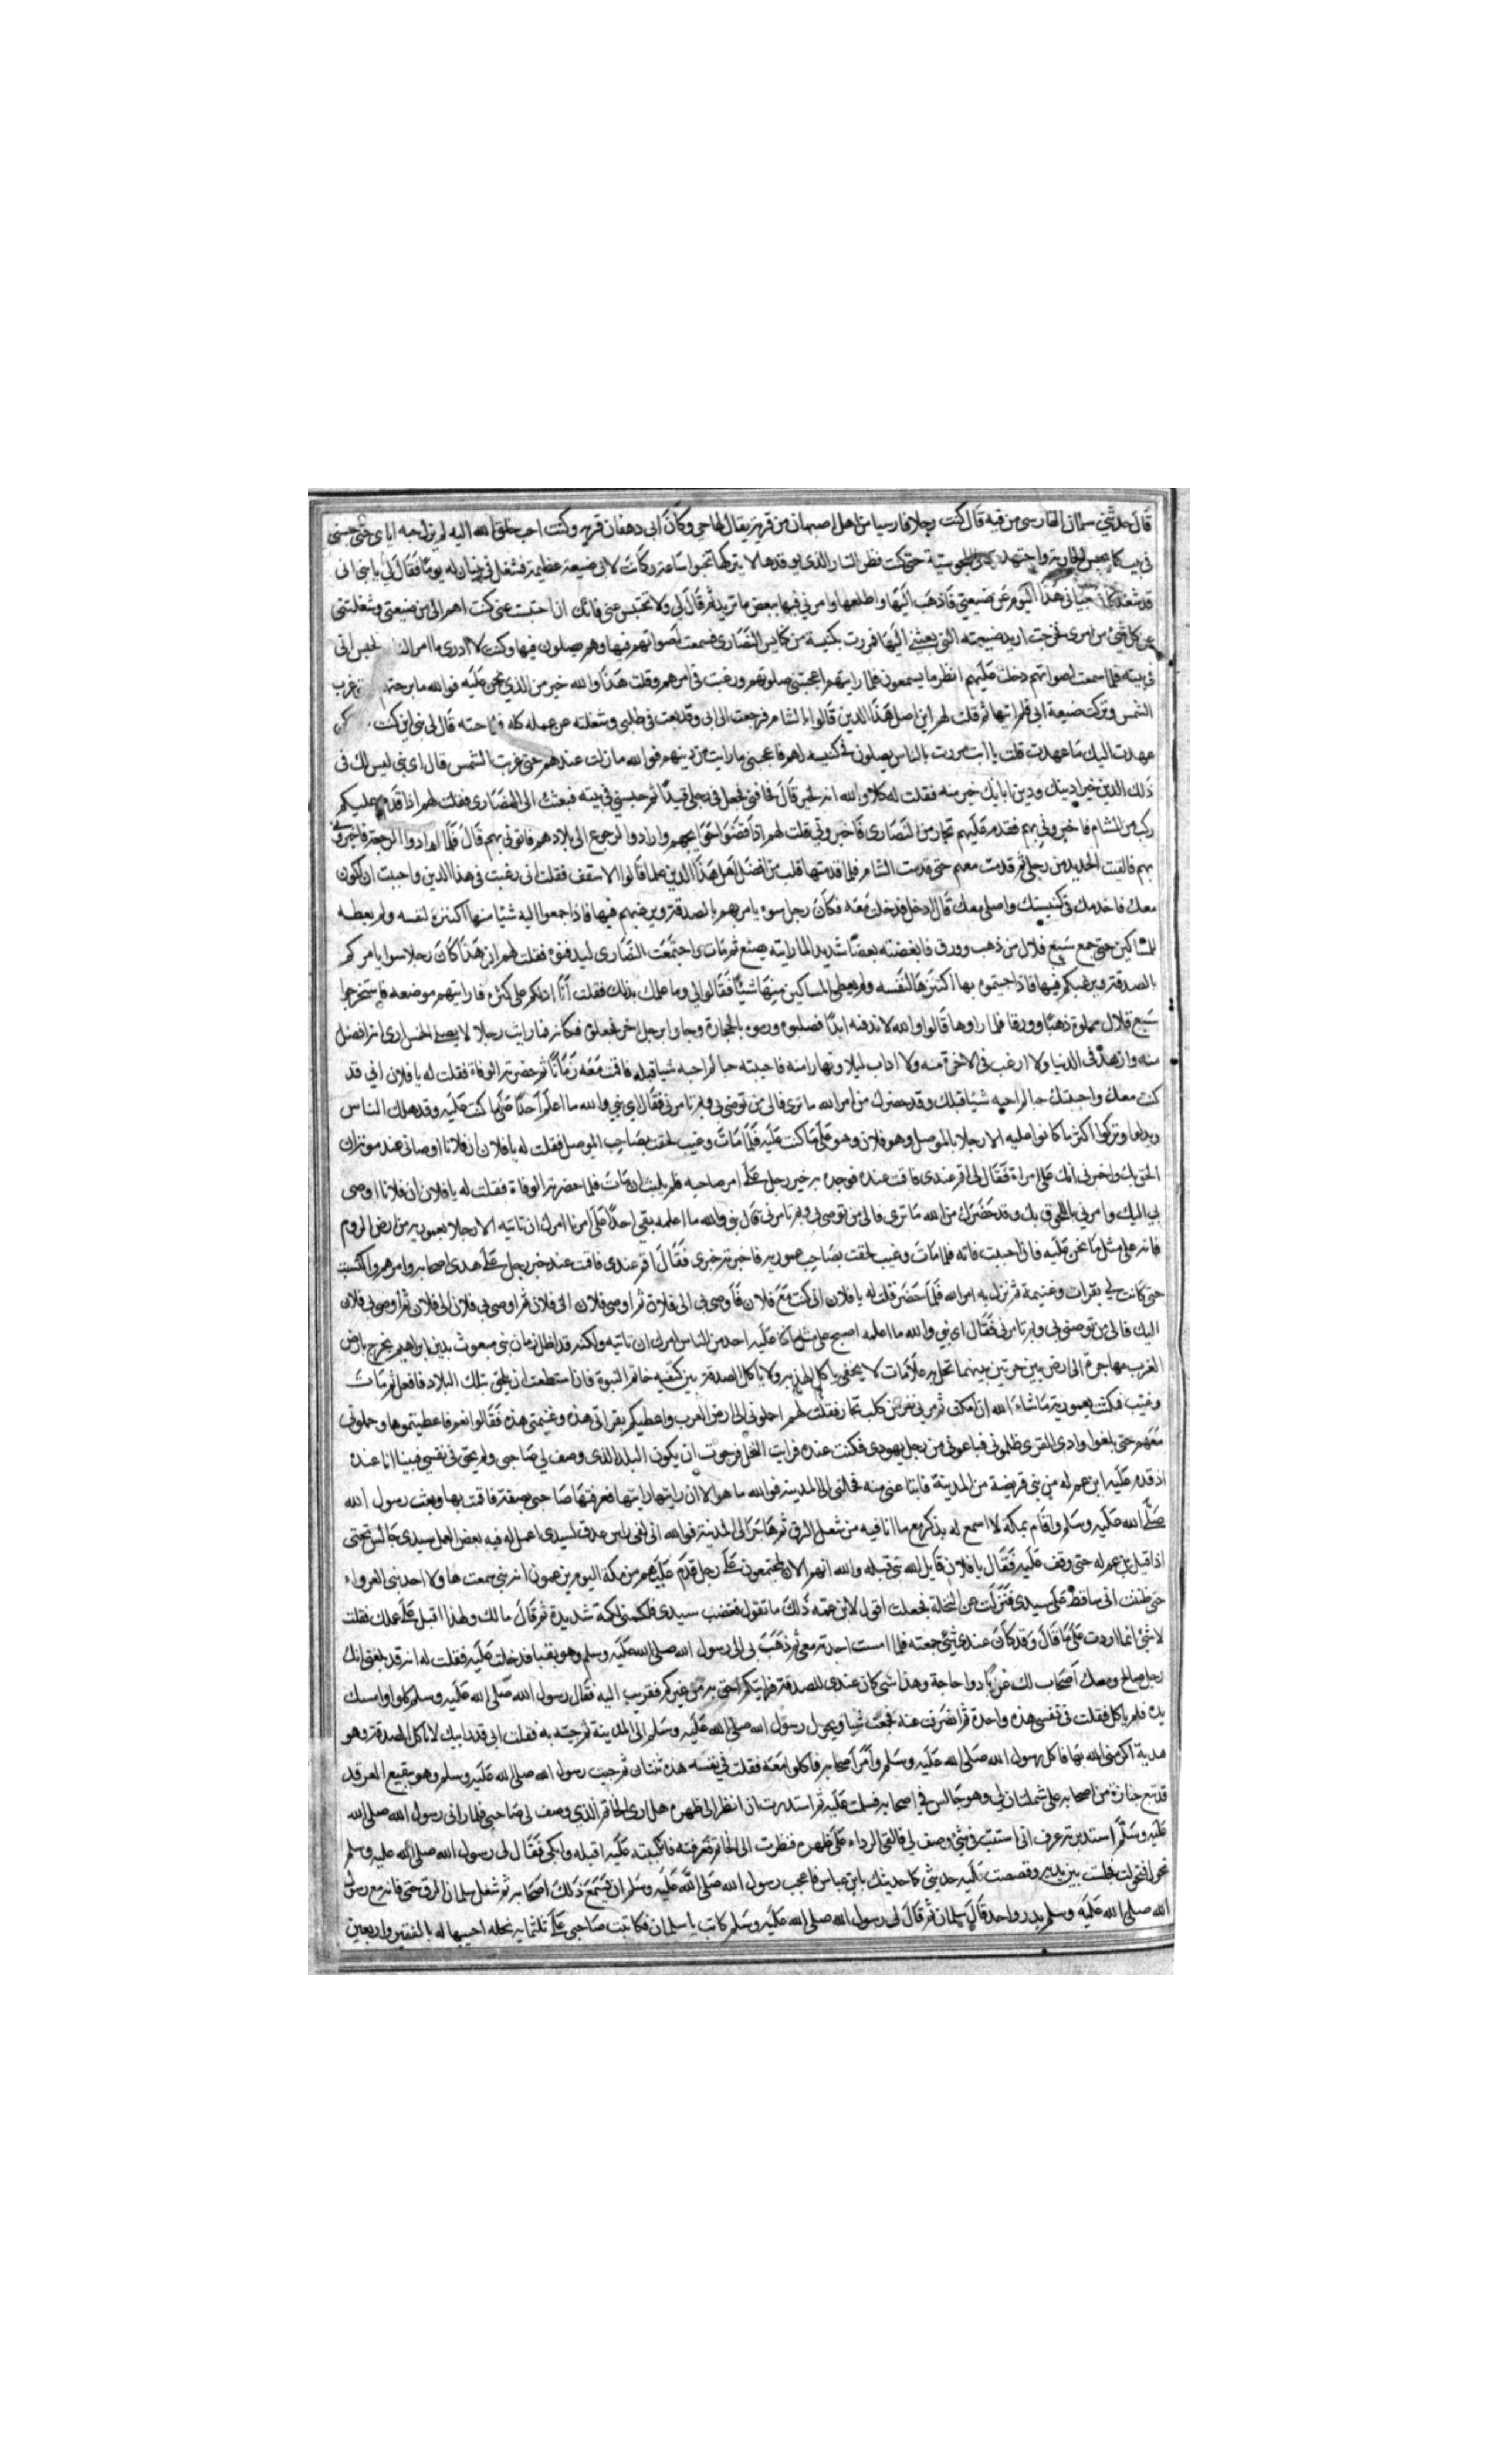 قال حدثني سلمان الفارسي من فيه قال كنت رجلا فارسيا من اهل اصبهان من قرية يقال لها جي وكان ابي دهقان قريته وكنت احب خلق الله اليه لم يزل حبه اياي حتى حبسني
في بيت كما يحبس الجارية واجتهدت في المجوسية حتى كنت قطن النار الذي يوقدها لا يتركها تخبوا ساعة وكانت لابي ضيعة عظيمة فشغل في بنيان له يوما فقال لي يا بني اني
قد شغلت في بنياني هذا اليوم عن ضيعتي فاذهب اليها واطلعها وامرني فيها ببعض ما تريد ثم قال لي ولا تحتبس عني فانك ان احتبست عني كنت اهم الي من ضيعتي وشغلتني
عن كل شيء من امري فخرجت اريد ضيعته التي بعثني اليها فمررت بكنيسة من كنايس النصارى فسمعت اصواتهم فيها وهم يصلون فيها وكنت لا ادري ما امر الناس لحبس ابي
في بيته فلما سمعت اصواتهم دخلت عليهم انظر ما يسمعون فلما رايتهم اعجبتني صلوتهم ورغبت في امرهم وقلت هذا والله خير من الذي نحن عليه فوالله ما برحتهم غرب
الشمس وتركت ضيعة ابي فلم اتها ثم قلت لهم اين اصل هذا الدين قالوا بالشام فرجعت الى ابي وقد بعث في طلبي وشغلته عن عمله كله فلما جئته قال لي بني اين كنت
عهدت اليك ما عهدت قلت يا ابت مررت بالناس يصلون في كنيسه لهم فاعجبني ما رايت من دينهم فوالله ما زلت عندهم حتى غربت الشمس قال اي بني ليس لك في
ذلك الدين خير دينك ودين ابايك خير منه فقلت له كلا والله انه لخير قال فخافني فجعل في رجلي قيدا ثم حبسني في بيته فبعثت الى النصارى فقلت لهم اذا قدم عليكم
ركب من الشام فاخبروني بهم فقدم عليهم تجار من النصارى فاخبروني قلت لهم اذا قضوا حوايجهم وارادوا الرجوع الى بلادهم فاتوني بهم قال فلما ارادوا الرجعة فاخبروني
بهم فالقيت الحديد من رجلي ثم قدمت معهم حتى قدمت الشام فلما قدمتها قلت من افضل اهل هذا الدين علما قالوا الاسقف فقلت اني رغبت في هذا الدين واحببت ان اكون
معك فاخدمك في كنيستك واصلي معك قال ادخل فدخلت معه فكان رجل سوء يامرهم بالصدقة ويرغبهم فيها فاذا جمعوا اليه شيئا منها اكتنزه لنفسه ولم يعطه
للمساكين حتى جمع سبع قلال من ذهب وورق فابغضته بغضا شديدا لما رايته يصنع ثم مات واجتمعت النصارى ليدفنوه فقلت لهم ان هذا كان رجلا سوا يامركم
بالصدقة ويرغبكم فيها فاذا جيتموه بها اكتنزها لنفسه ولم يعطي المساكين منها شيئا فقالوا لي وما علمك بذلك فقلت انا ادلكم على كنزه فارايتهم موضعه فاستخرجوا
سبع قلال مملوة ذهبا وورقا فلما راوها قالوا والله لا ندفنه ابدا فصلبوه ورموه بالحجارة وجاوا برجل اخر فجعلوه مكانه فما رايت رجلا لا يصلي الخمس اري انه افضل
منه وازهد في الدنيا ولا ارغب في الاخرة منه ولا اداب ليلا ونهارا منه فاحببته حبا لم احبه شيا قبله فاقمت معه زمانا ثم حضرته الوفاة فقلت له يا فلان اني قد
كنت معك واحببتك حبا لم احبه شيئا قبلك وقد حضرك من امر الله ما ترى فالى من توصي بي وبم تامرني فقال اي بني والله ما اعلم احدا على ما كنت عليه وقد هلك الناس
وبدلوا وتركوا اكثر ما كانوا عليه الا رجلا بالموصل وهو فلان وهو على ما كنت عليه فلما مات وغيب لحقت بصاحب الموصل فقلت له يا فلان ان فلانا اوصاني عند موته ان
الحق بك واخبرني انك على امره فقال لي اقم عندي فاقمت عنده فوجدته خير رجل على امر صاحبه فلم يلبث ان مات فلما حضرته الوفاة فقلت له يا فلان ان فلانا اوصى
بي اليك وامرني باللحوق بك وقد حضرك من الله ما ترى فالى من توصي بي وبم تامرني قال بني والله ما اعلمه بقي احدا على امرنا امرك ان تاتيه الا رجلا بعمورية من ارض الروم
فانه على مثل ما نحن عليه فان احببت فاته فلما مات وغيب لحقت بصاحب عمورية فاخبرته خبري فقال اقم عندي فاقمت عند خير رجل على هدى اصحابه وامرهم واكتسبت
حتى كانت لي بقرات وغنيمة ثم نزل به امر الله فلما حضر قلت له يا فلان اني كنت مع فلان فاوصى بي الى فلان ثم اوصى فلان الى فلان ثم اوصى بي فلان الى فلان ثم اوصى بي فلان
اليك فالى من توصني بي وبم تامرني فقال اي بني والله ما اعلمه اصبح على مثل ما كنا عليه احد من الناس امرك ان تاتيه ولكنه قد اظل زمان نبي مبعوث بدين ابراهيم يخرج بارض
العرب مهاجره الى ارض بين حرتين بينهما نخل به علامات لا يخفى ياكل الهدية ولا ياكل الصدقة بين كتفيه خاتم النبوة فان استطعت ان تلحق بتلك البلاد فافعل ثم مات
وغيب فمكثت بعمورية ما شاء الله ان امكث ثم مر بي نفر من كلب تجار فقلت لهم احملوني الى ارض العرب واعطيكم بقراتي هذه وغنيمتي هذه فقالوا نعم فاعطيتموها وحملوني
معهم حتى بلغوا وادي القرى ظلموني فباعوني من رجل يهودي فكنت عنده فرايت النخل فرجوت ان يكون البلد الذي وصف لي صاحبي ولم يحق في نفسي فبينا انا عنده
اذ قدم عليه ابن عم له من بني قريضة من المدينة فابتاعني منه فحملني الى المدينة فوالله ما هو الا ان رايتها رايتها فعرفتها صاحبي بصفة فاقمت بها وبعث رسول الله
صلى الله عليه وسلم واقام بمكة لا اسمع له بذكر مع ما انا فيه من شغل الرق ثم هاجر الى المدينة فوالله اني لفي راس عذق لسيدي اعمل له فيه بعض العمل سيدي جالس تحتي
اذ اقبل بن عم له حتى وقف عليه فقال يا فلان قاتل الله بني قيله والله انهم الان لمجتمعون على رجل قدم عليهم من مكة اليوم يزعمون انه نبي سمعت ها ولا احد بني العرواء
حتى ظننت اني ساقط على سيدي فنزلت عن النخلة فجعلت اقول لابن عمه ذلك ما تقول فغضب سيدي فلكمني لكمة شديدة ثم قال مالك ولهذا اقبل على عملك فقلت
لا شي انما اردت على ما قال وقد كان عندي شيء جمعته فلما امسيت اخذته معي ثم ذهبت بي الى رسول الله صلى الله عليه وسلم وهو بقبا فدخلت عليه فقلت له انه قد بلغني انك
رجل صالح ومعك اصحاب لك غربا ذوا حاجة وهذا شي كان عندي للصدقة فرايتكم احق به من غيركم فقربت اليه فقال رسول الله صلى الله عليه وسلم كلوا وامسك
يده فلم ياكل فقلت في نفسي هذه واحدة ثم انصرفت عنه فجمعت شيا وتحول رسول الله صلى الله عليه وسلم الى المدينة ثم جيته به فقلت اني قد رايتك لا تاكل الصدقة وهو
هدية اكرمني الله بها فاكل رسول الله صلى الله عليه وسلم وامر اصحابه فاكلوا معه فقلت في نفسه هذه ثنتان ثم جيت رسول الله صلى الله عليه وسلم وهو ببقيع الغرقد
قد تبع جنازة من اصحابه على شملتان لي وهو جالس في اصحابه فسلمت عليه ثم استدرت ان انظر الى ظهره هل ارى الخاتم الذي وصف لي صاحبي فلما راني رسول الله صلى الله
عليه وسلم استدبرته عرف اني استثبت في شيء وصف لي فالقى الرداء على ظهره فنظرت الى الخاتم فعرفته فانكببته عليه اقبله وابكي فقال لي رسول الله صلى الله عليه وسلم
تحول فتحولت فجلست بين يديه وقصصت عليه حديثي كما حدثتك يا بن عباس فاعجب رسول الله صلى الله عليه وسلم ان يسمع ذلك اصحابه ثم شغل سلمان الرق حتى فاته مع رسول
الله صلى الله عليه وسلم بدر واحد قال سلمان ثم قال لي رسول الله صلى الله عليه وسلم كاتب يا سلمان فكاتبت صاحبي على ثلثماية نحله احييها له بالفقير واربعين